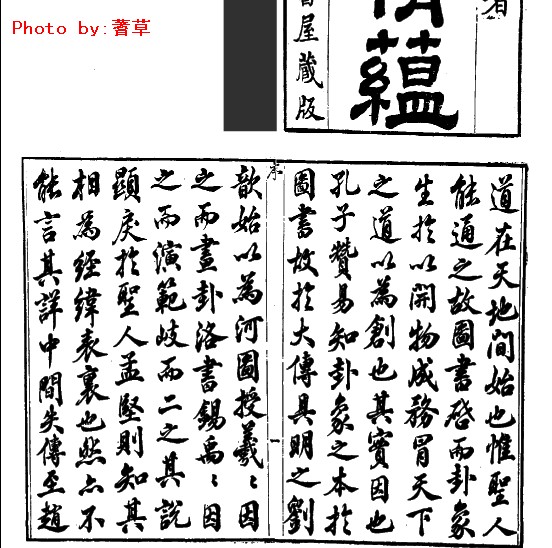 Photo by:蓍草
蘊
屋藏版
道在天地間始也惟聖人
能通之故圖書啓而卦象
生於以開物成務冒天下
之道以為創也其實因也
孔子贊易知卦象之本於
圖書故於大傳具明之劉
歆始以為河圖授羲〻因
之而畫卦洛書錫禹〻因
之而演範岐而二之其說
顯戾於聖人孟堅則知其
相為經緯表裏也然亦不
能言其詳中間失傳至趙